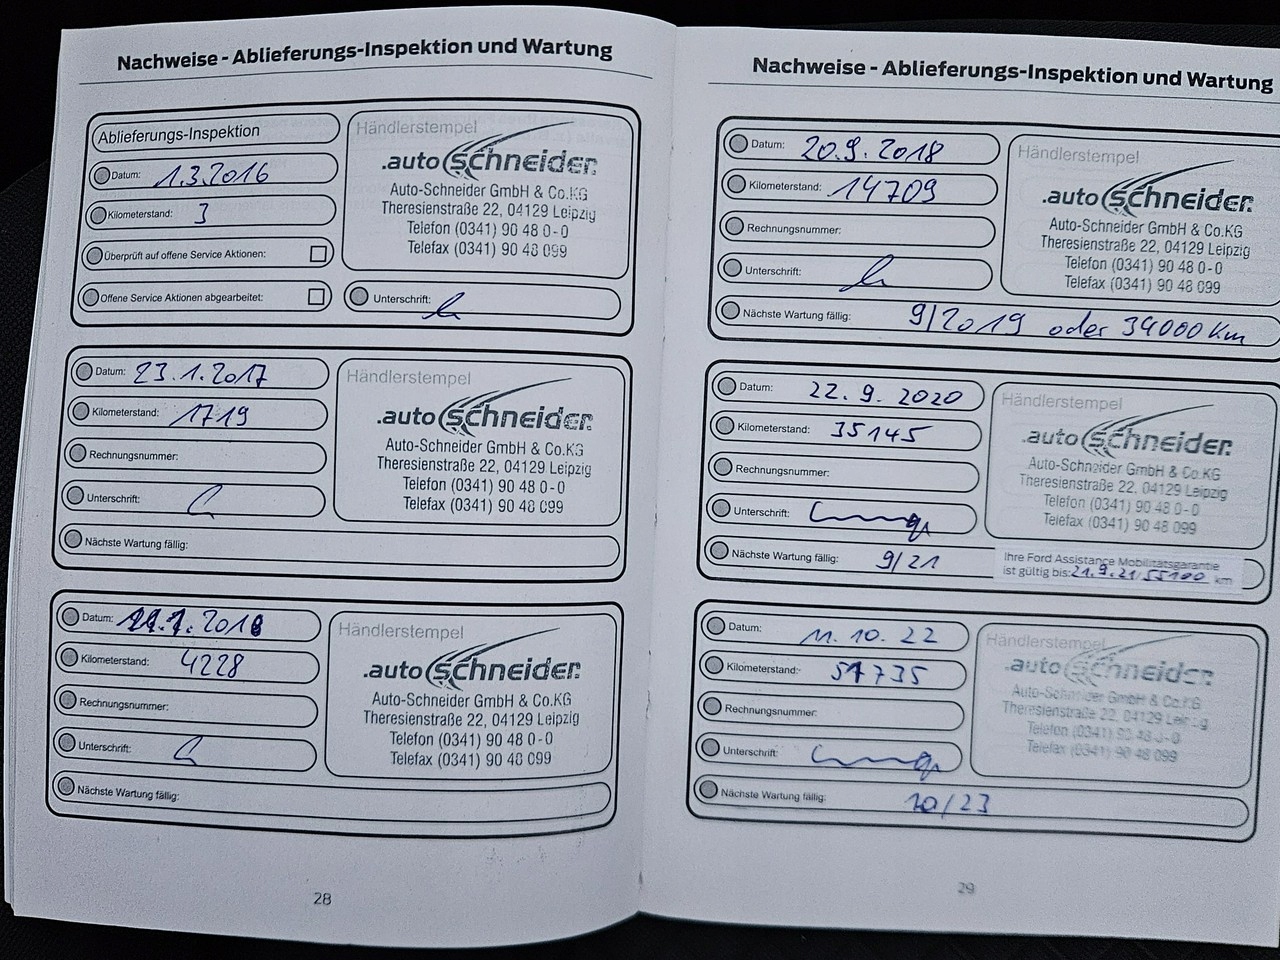 Nachweise - Ablieferungs-Inspektion und Wartung
Ablieferungs-Inspektion
Datum: 1.3.2016
Kilometerstand: 3
Überprüft auf offene Service Aktionen:
Offene Service Aktionen abgearbeitet:
Händlerstempel
.auto schneider.
Auto-Schneider GmbH & Co.KG
Theresienstraße 22, 04129 Leipzig
Telefon (0341) 90 48 0-0
Telefax (0341) 90 48 099
Unterschrift:
Datum: 23.1.2017
Kilometerstand: 1719
Rechnungsnummer:
Unterschrift:
Nächste Wartung fällig:
Händlerstempel
.auto schneider.
Auto-Schneider GmbH & Co.KG
Theresienstraße 22, 04129 Leipzig
Telefon (0341) 90 48 0-0
Telefax (0341) 90 48 099
Datum: 2018
Kilometerstand: 4228
Rechnungsnummer:
Unterschrift:
Nächste Wartung fällig:
Händlerstempel
.auto schneider.
Auto-Schneider GmbH & Co.KG
Theresienstraße 22, 04129 Leipzig
Telefon (0341) 90 48 0-0
Telefax (0341) 90 48 099
28
Nachweise - Ablieferungs-Inspektion und Wartung
Datum: 20.9.2018
Kilometerstand: 14709
Rechnungsnummer:
Unterschrift:
Nächste Wartung fällig: 9/2019 oder 34000 Km
Händlerstempel
.auto schneider.
Auto-Schneider GmbH & Co.KG
Theresienstraße 22, 04129 Leipzig
Telefon (0341) 90 48 0-0
Telefax (0341) 90 48 099
Datum: 22.9.2020
Kilometerstand: 35145
Rechnungsnummer:
Unterschrift:
Nächste Wartung fällig: 9/21
Händlerstempel
.auto schneider.
Auto-Schneider GmbH & Co.KG
Theresienstraße 22, 04129 Leipzig
Telefon (0341) 90 48 0-0
Telefax (0341) 90 48 099
Ihre Ford Assistance Mobilitätsgarantie
ist gültig bis: 21.9.21 55100 km
Datum: 11.10.22
Kilometerstand: 51735
Rechnungsnummer:
Unterschrift:
Nächste Wartung fällig: 10/23
Händlerstempel
.auto schneider.
Auto-Schneider GmbH & Co.KG
Theresienstraße 22, 04129 Leipzig
Telefon (0341) 90 48 0-0
Telefax (0341) 90 48 099
29